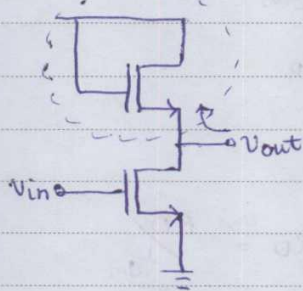 Vout
Vin